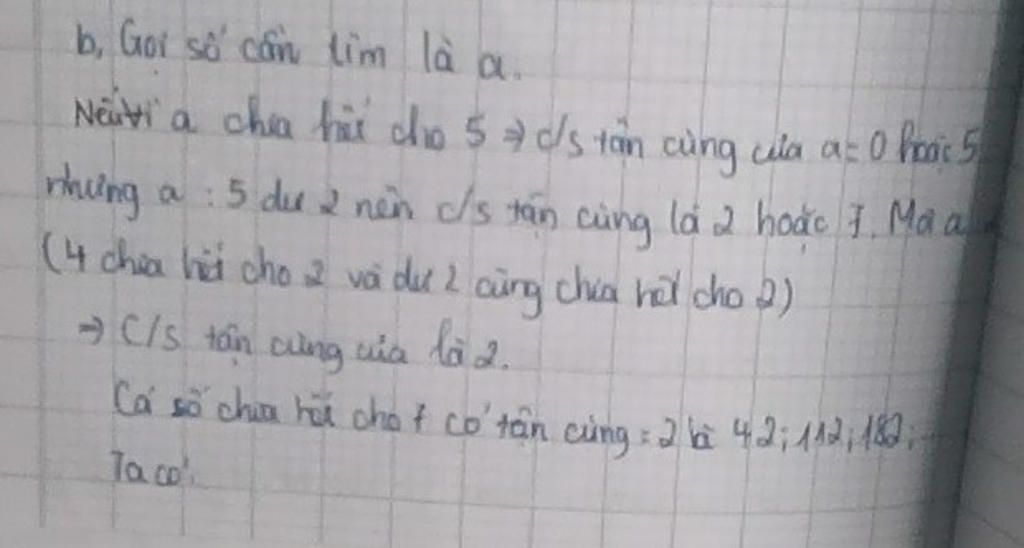 b, Gọi số cần tìm là a.
Nếu a chia hết cho 5 => c/s tận cùng của a = 0 hoặc 5
nhưng a : 5 dư 2 nên c/s tận cùng là 2 hoặc 7. Mà a
(4 chia hết cho 2 và dư 2 cũng chia hết cho 2)
=> C/s tận cùng của là 2.
Cá số chia hết cho 7 có tận cùng = 2 là 42; 112; 182; ...
Ta có: